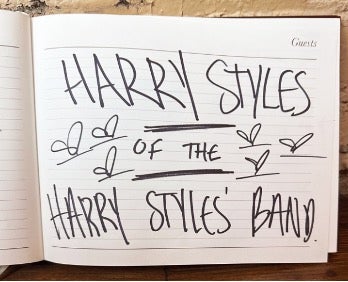 Guests
HARRY STYLES
OF THE
HARRY STYLES' BAND.